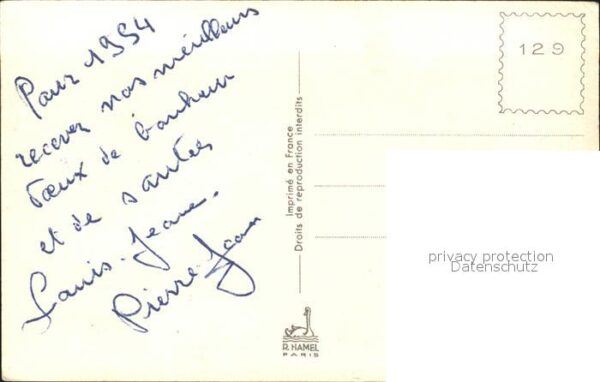 Pour 1954
recevez nos meilleurs
vœux de bonheur
et de santés
Louis-Jeane.
Pierre-Jean
Imprimé en France
Droits de reproduction interdits
129
privacy protection
Datenschutz
R. HAMEL
PARIS